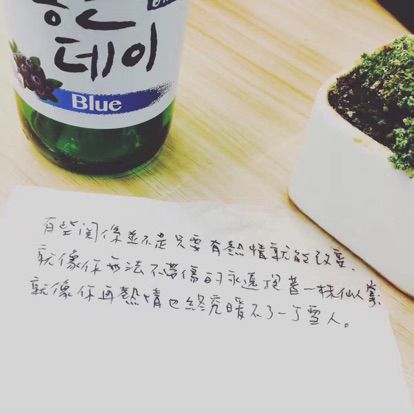 데이
Blue
有些関係並不是只要有熱情就能改變、
就像你無法不帶傷的永遠抱著一株仙人掌;
就像你再熱情也終究暖不了一个雪人。